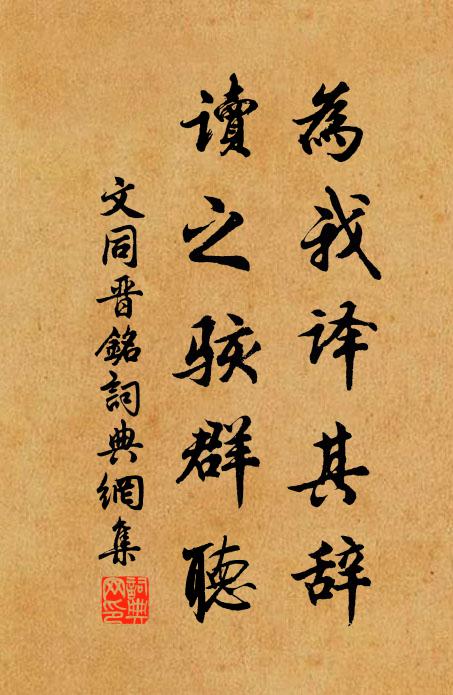 為我译其辞
讀之駭群聽
文同晋銘詞典網集
詞典网印